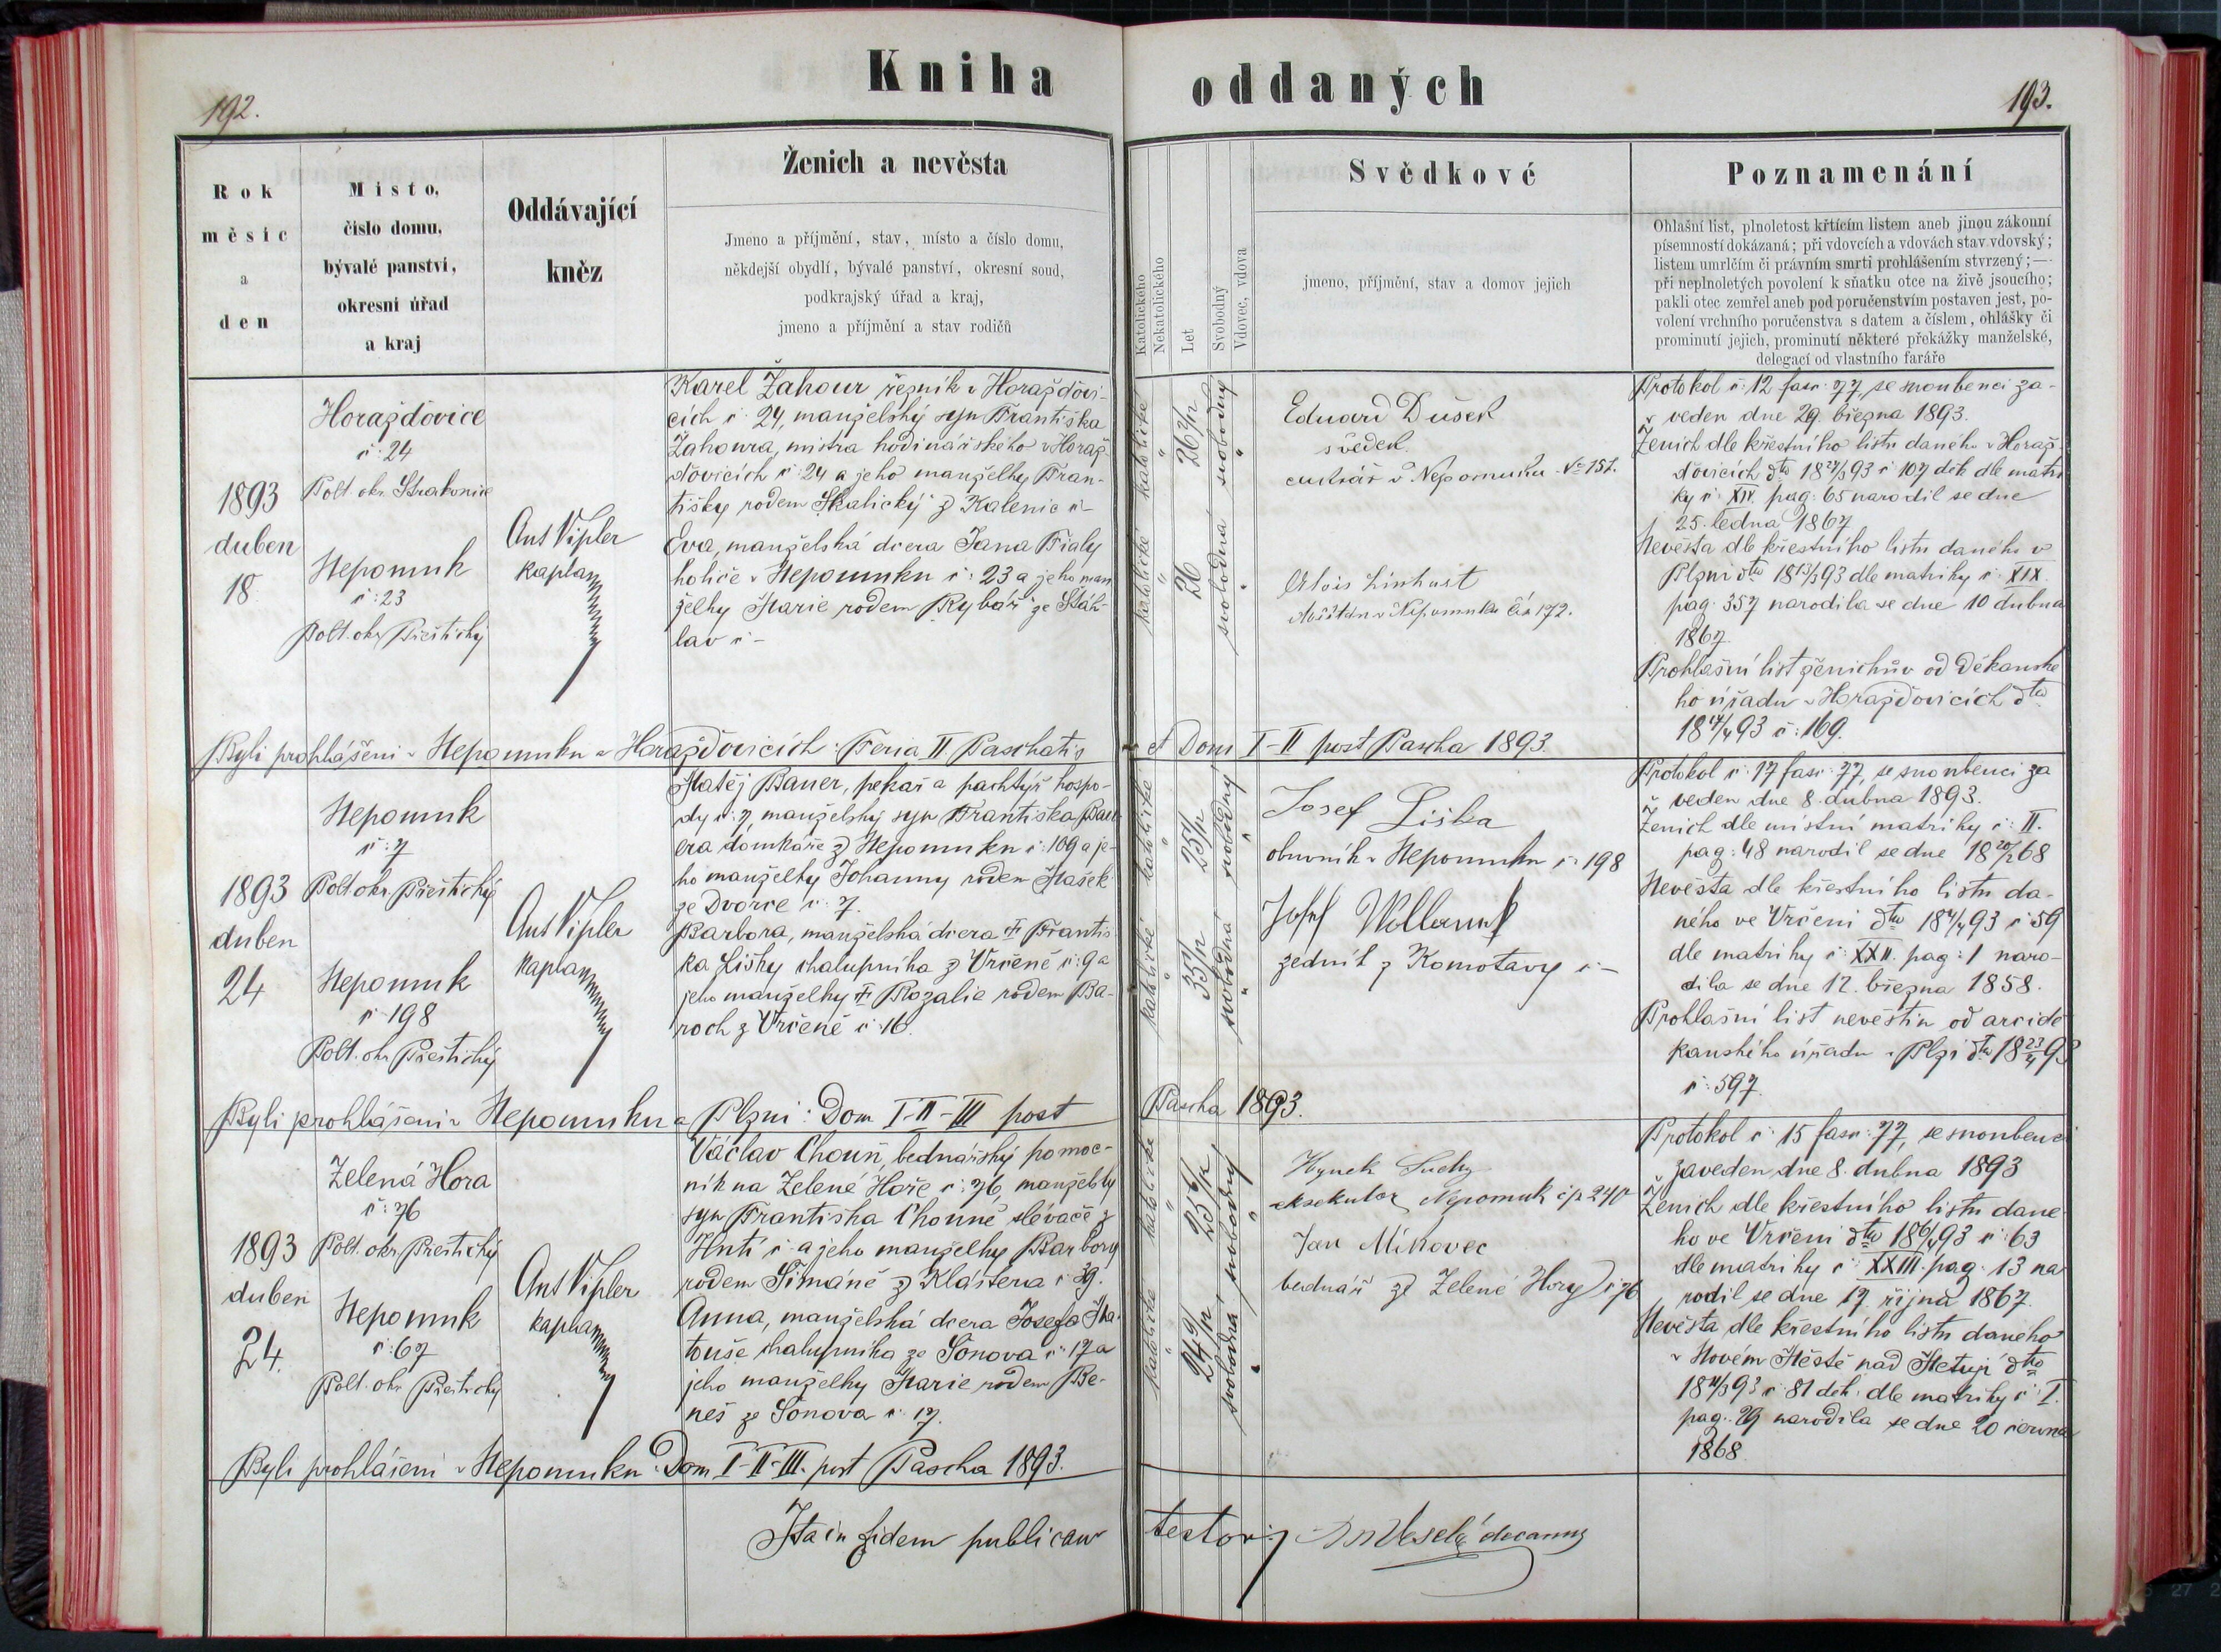 Kniha oddaných
192.
193.
Rok
měsíc
a
den
Misto,
číslo domu,
bývalé panství,
okresní úřad
a kraj
Oddávající
kněz
Ženich a nevěsta
Jmeno a příjmění, stav, místo a číslo domu,
někdejší obydlí, bývalé panství, okresní soud,
podkrajský úřad a kraj,
jmeno a příjmění a stav rodičů
Katolického
Nekatolického
Let
Svobodný
Vdovec, vdova
Svědkové
jmeno, příjmění, stav a domov jejich
Poznamenání
Ohlašní list, plnoletost křtícím listem aneb jinou zákonní
písemností dokázaná; při vdovcích a vdovách stav vdovský;
listem umrlčím či právním smrti prohlášením stvrzený; —
při neplnoletých povolení k sňatku otce na živě jsoucího;
pakli otec zemřel aneb pod poručenstvím postaven jest, po-
volení vrchního poručenstva s datem a číslem, ohlášky či
prominutí jejich, prominutí některé překážky manželské,
delegací od vlastního faráře
1893
duben
18.
Horažďovice
č: 24
Polt. okr. Strakonice
Nepomuk
č: 23
Polt. okr. Přeštický
Ant Vipler
kaplan
Karel Žahour řezník v Horažďovi-
cích č: 24, manželský syn Františka
Žahoura, mistra hodinářského v Horaž-
ďovicích č: 24 a jeho manželky Fran-
tišky rodem Skalický z Kalenic č -
Eva, manželská dcera Jana Fialy
holiče v Nepomuku č: 23 a jeho man
želky Marie rodem Rybář ze Šťáh-
lav č -
katolické " 26 2/12 svobodný "
katolické " 26 svobodná "
Eduard Dušek
svědek
cukrář v Nepomuku No 151.
Alois Linhart
měšťan v Nepomuku čís 172.
Protokol č: 12 fasc: 77, se snoubenci za-
veden dne 29. března 1893.
Ženich dle křestního listu daného v Horaž-
ďovicích dto 18 27/3 93 č 107 děk dle matri
ky č: XIV. pag: 65 narodil se dne
25. ledna 1867
Nevěsta dle křestního listu daného v
Plzni dto 18 13/3 93 dle matriky č: XIX.
pag: 357 narodila se dne 10 dubna
1867.
Prohlašní list ženichův od Děkanské
ho úřadu v Horažďovicích dto
18 17/4 93 č: 169.
Byli prohlášeni v Nepomuku a Horažďovicích: Feria II Paschatis et Dom I-II post Pascha 1893.
1893
duben
24
Nepomuk
č: 7
Polt okr. Přeštický
Nepomuk
č 198
Polt. okr. Přeštický
Ant Vipler
kaplan
Matěj Bauer, pekař a pachtýř hospo-
dy č: 7 manželský syn Františka Bau
era domkáře z Nepomuku č: 109 a je-
ho manželky Johanny rodem Mašek
ze Dvorce č: 7.
Barbora, manželská dcera † Františ
ka Lišky chalupníka z Vrčeně č: 9 a
jeho manželky † Rozalie rodem Ba-
roch z Vrčeně č 16.
katolické " 25 1/12 svobodný "
katolické " 35 1/12 svobodná "
Josef Liška
obuvník v Nepomuku č: 198
Josef
zedník z Komotavy č -
Protokol č: 17 fasc: 77, se snoubenci za
veden dne 8. dubna 1893.
Ženich dle místní matriky č: II.
pag: 48 narodil se dne 18 20/2 68
Nevěsta dle křestního listu da-
ného ve Vrčeni dto 18 4/4 93 č 59
dle matriky č: XXII. pag: 1 naro-
dila se dne 12. března 1858.
Prohlašní list nevěstin od arcidě
kanského úřadu v Plzni dto 18 23/4 93
č: 597.
Byli prohlášeni v Nepomuku a Plzni: Dom I-II-III post Pascha 1893.
1893
duben
24.
Zelená Hora
č: 76
Polt. okr. Přeštický
Nepomuk
č: 67
Polt. okr Přeštický
Ant Vipler
kaplan
Václav Chouň, bednářský pomoc-
ník na Zelené Hoře č: 76, manželský
syn Františka Chouně slévače z
Hutí č: a jeho manželky Barbory
rodem Šimáně z Kláštera č 39.
Anna, manželská dcera Josefa Ma-
touše chalupníka ze Šonova č: 17 a
jeho manželky Marie rodem Be-
neš ze Šonova č: 17.
katolické " 25 6/12 svobodný "
katolické " 24 9/12 svobodná "
Hynek Suchy
eksekutor Nepomuk čp 240
Jan Mikovec
bednář ze Zelené Hory č 76
Protokol č: 15 fasc: 77, se snoubenci
zaveden dne 8. dubna 1893
Ženich dle křestního listu dané
ho ve Vrčeni dto 18 6/4 93 č: 63
dle matriky č: XXIII. pag. 13 na
rodil se dne 17. října 1867.
Nevěsta dle křestního listu daného
v Novém Městě nad Metují dto
18 21/3 93 č 81 děk: dle matriky č: I.
pag. 29 narodila se dne 20 června
1868.
Byli prohlášeni v Nepomuku: Dom I-II-III. post Pascha 1893.
Ita in fidem publicam testor: Veselý decanus